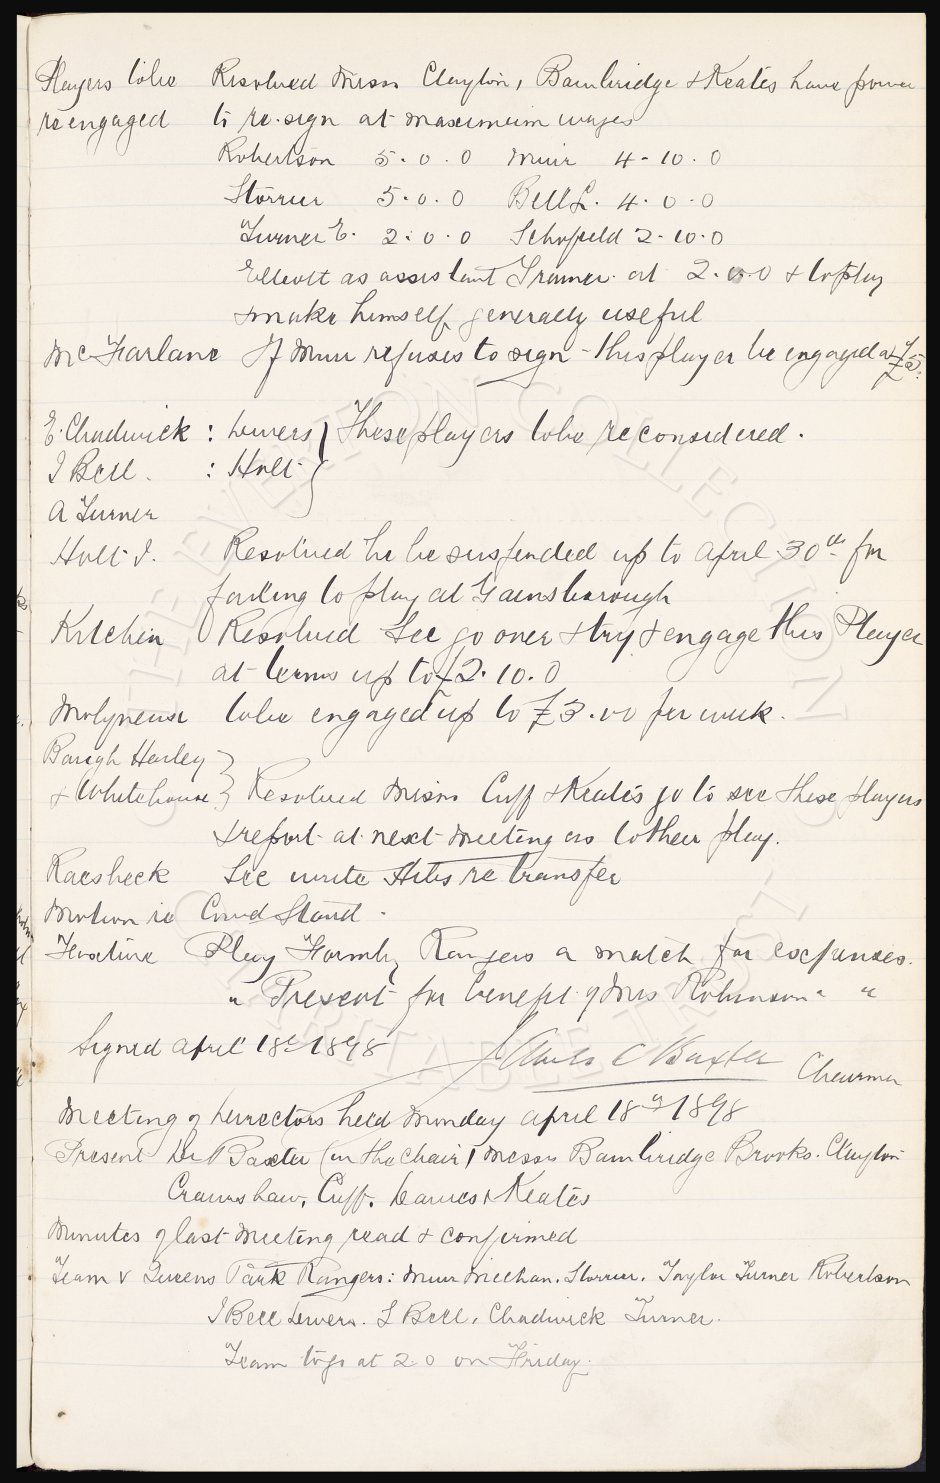 Players to be Resolved Messrs Clayton, Bainbridge & Keates have power
re engaged to re-sign at maximum wages
Robertson 5. 0. 0 Muir 4 - 10. 0
Storrier 5. 0. 0 Bell L. 4. 0. 0
Turner E. 2. 0. 0 Schofield 2. 10. 0
Elliott as assistant Trainer at 2. 0. 0 & to play
& make himself generally useful
McFarlane If Muir refuses to sign - this player be engaged at £5.
E. Chadwick : Divers } These players to be reconsidered.
J Bell. : Holt
A Turner
Holt J. Resolved he be suspended up to April 30th for
failing to play at Gainsborough
Kitchin Resolved Sec go over & try & engage this Player
at terms up to £2. 10. 0
Molyneux to be engaged up to £3.00 per week.
Baugh Harley }
& Whitehouse } Resolved Messrs Cuff & Keates go to see these players
& report at next Meeting as to their play.
Raesbeck Sec write Hibs re transfer
Motion re Cov'd Stand.
Fixture Play Formby Rangers a match for expenses.
" Prescot for benefit of Mrs Robinson " "
Signed April 18th 1898 James C Baxter Chairman
Meeting of Directors held Monday April 18th 1898
Present Dr Baxter (in the Chair) Messrs Bainbridge Brooks. Clayton
Crawshaw, Cuff, Davies & Keates
Minutes of last Meeting read & confirmed
Team v Queens Park Rangers: Muir Meehan. Storrier. Taylor Turner Robertson
J Bell Divers. L Bell, Chadwick Turner.
Team to go at 2 0 on Friday.
THE EVERTON COLLECTION
CHARITABLE TRUST